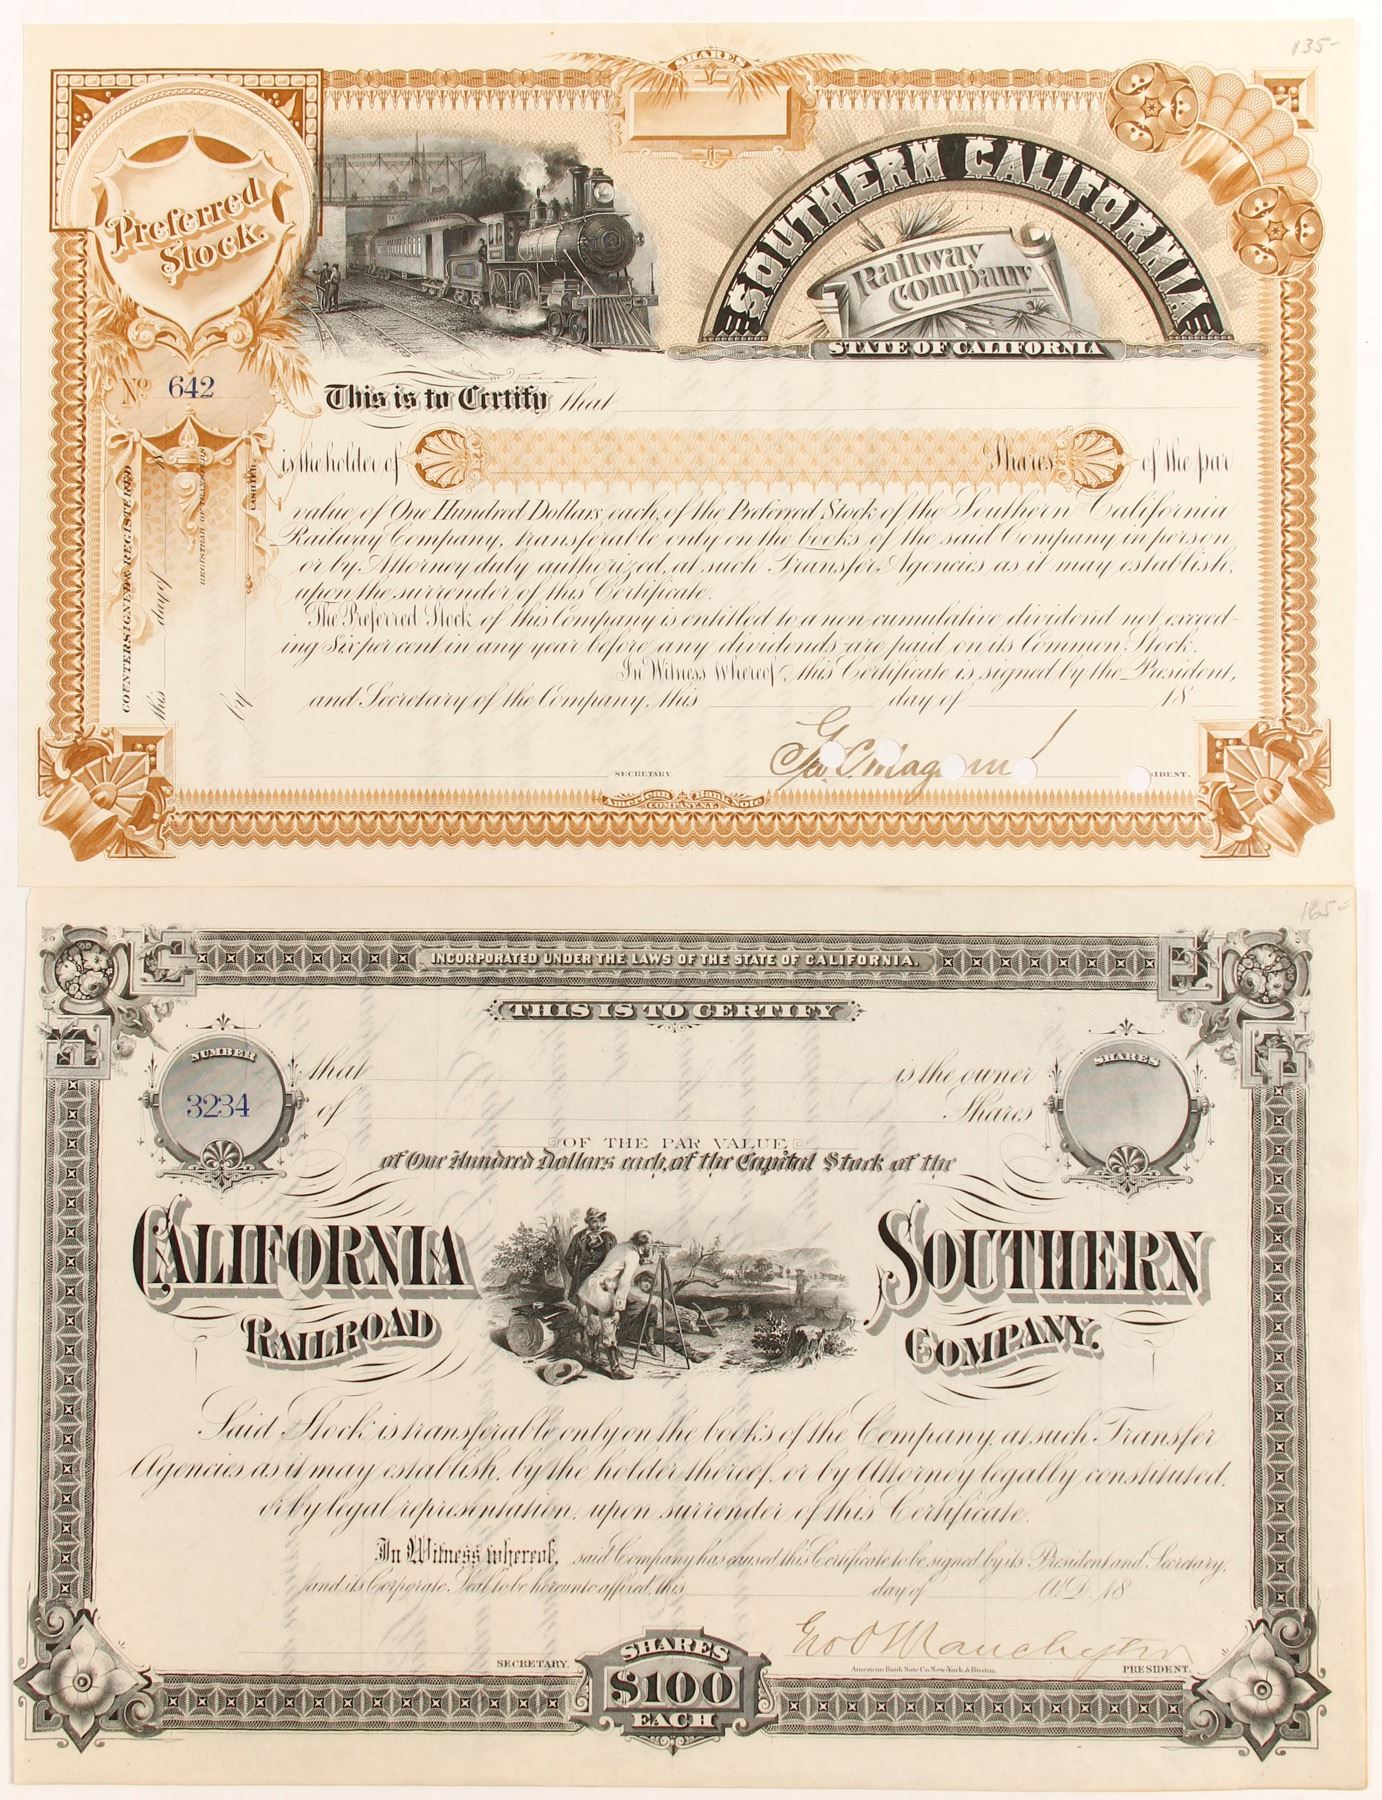 135-
SHARES
Preferred
Stock.
SOUTHERN CALIFORNIA
Railway
Company
STATE OF CALIFORNIA
No 642
This is to Certify that
is the holder of Shares of the par
value of One Hundred Dollars each, of the Preferred Stock of the Southern California
Railway Company, transferable only on the books of the said Company in person
or by Attorney duly authorized, at such Transfer Agencies as it may establish,
upon the surrender of this Certificate.
The Preferred Stock of this Company is entitled to a non-cumulative dividend not exceed-
ing Six per cent in any year before any dividends are paid on its Common Stock.
In Witness Whereof, this Certificate is signed by the President,
and Secretary of the Company, this day of 18
COUNTERSIGNED & REGISTERED
this day of 18
REGISTRAR OF TRANSFERS
by CASHIER
SECRETARY. SIDENT.
American Bank Note
COMPANY N.Y.
165=
INCORPORATED UNDER THE LAWS OF THE STATE OF CALIFORNIA.
THIS IS TO CERTIFY
NUMBER
3234
SHARES
that is the owner
of Shares
OF THE PAR VALUE
of One Hundred Dollars each, of the Capital Stock of the
CALIFORNIA SOUTHERN
RAILROAD COMPANY.
Said Stock is transferable only on the books of the Company, at such Transfer
Agencies as it may establish, by the holder thereof, or by Attorney legally constituted,
or by legal representation, upon surrender of this Certificate.
In Witness whereof, said Company has caused this Certificate to be signed by its President and Secretary,
and its Corporate Seal to be hereunto affixed, this day of A.D. 18
Geo O Manchester
SECRETARY. American Bank Note Co. New-York & Boston. PRESIDENT.
SHARES
$100
EACH